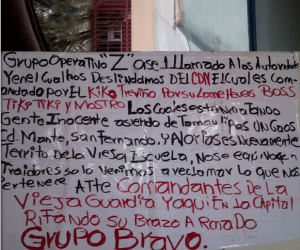 Grupo Operativo "Z" ase 1 LLamado A Las Autoridades
Y en el Cual nos Deslindamos DEL CDN El Cual es Com
andado por EL Kiko Treviño Por su Lame Huevos BOSS
TIKO TIKI y MOSTRO Los Cuales estan Matando
Gente Inocente asiendo de Tamaulipas UN CAOS
Cd. Mante, San Fernando, y Aldama es Nuevamente
Territorio de la Vieja Escuela, No se equivoquen
Traidores solo Venimos a reclamar lo que nos
Pertenece ATTE Comandantes De La
Vieja Guardia Yaqui En La Capital
Rifando su Brazo Armado
Grupo Bravo.